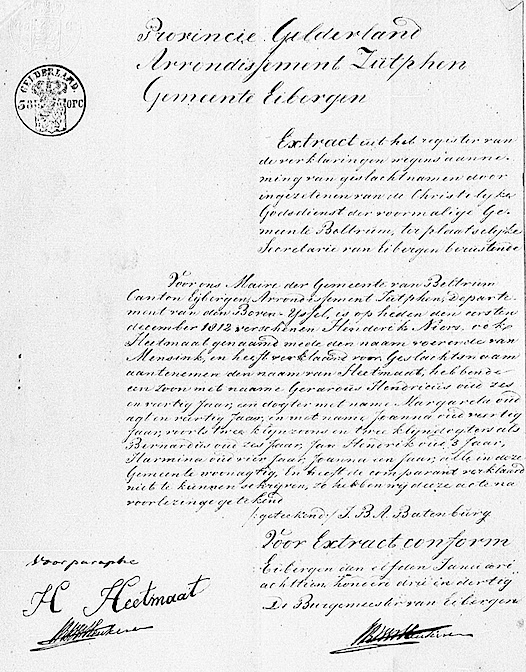 Provincie Gelderland
Arrondissement Zutphen
Gemeente Eibergen
GELDERLAND.
Extract uit het register van
de verklaringen wegens aanne-
ming van geslachtnamen door
ingezetenen van de Christelijke
Godsdienst der voormalige Ge-
meente Beltrum, ter plaatselijke
Secretarie van Eibergen berustende
Voor ons Maire der Gemeente van Beltrum
Canton Eijbergen, Arrondissement Zutphen, Departe-
ment van den Boven-Yssel, is op heden den eersten
december 1812 verschenen Hinderik Niers, ook
Heetmaat genaamd mede den naam voerende van
Mensink, en heeft verklaard voor Geslachtsnaam
aantenemen den naam van Heetmaat, hebbende
een zoon met naame Gerardus Hendricus oud zes
en vartig Jaar, en dogter met name Margareta oud
agt en vartig Jaar, en met name Joanna oud veertig
Jaar, voorts twee klynzoons en twee klyndogters als
Bernardus oud zes Jaar, Jan Hendrik oud 3 Jaar,
Harmina oud vier Jaar, Joanna een Jaar, alle in deze
Gemeente woonagtig, En heeft de comparant verklaard
niet te kunnen schryven, zo hebben wij deeze acte na
voorlezinge getekend
/:geteekend:/ J. B. A. Batenburg
Voor Extract conform
Eibergen den elfden Januari
achttien honderd drie en dertig
De Burgemeester van Eibergen
Voor paraphe
H Heetmaat